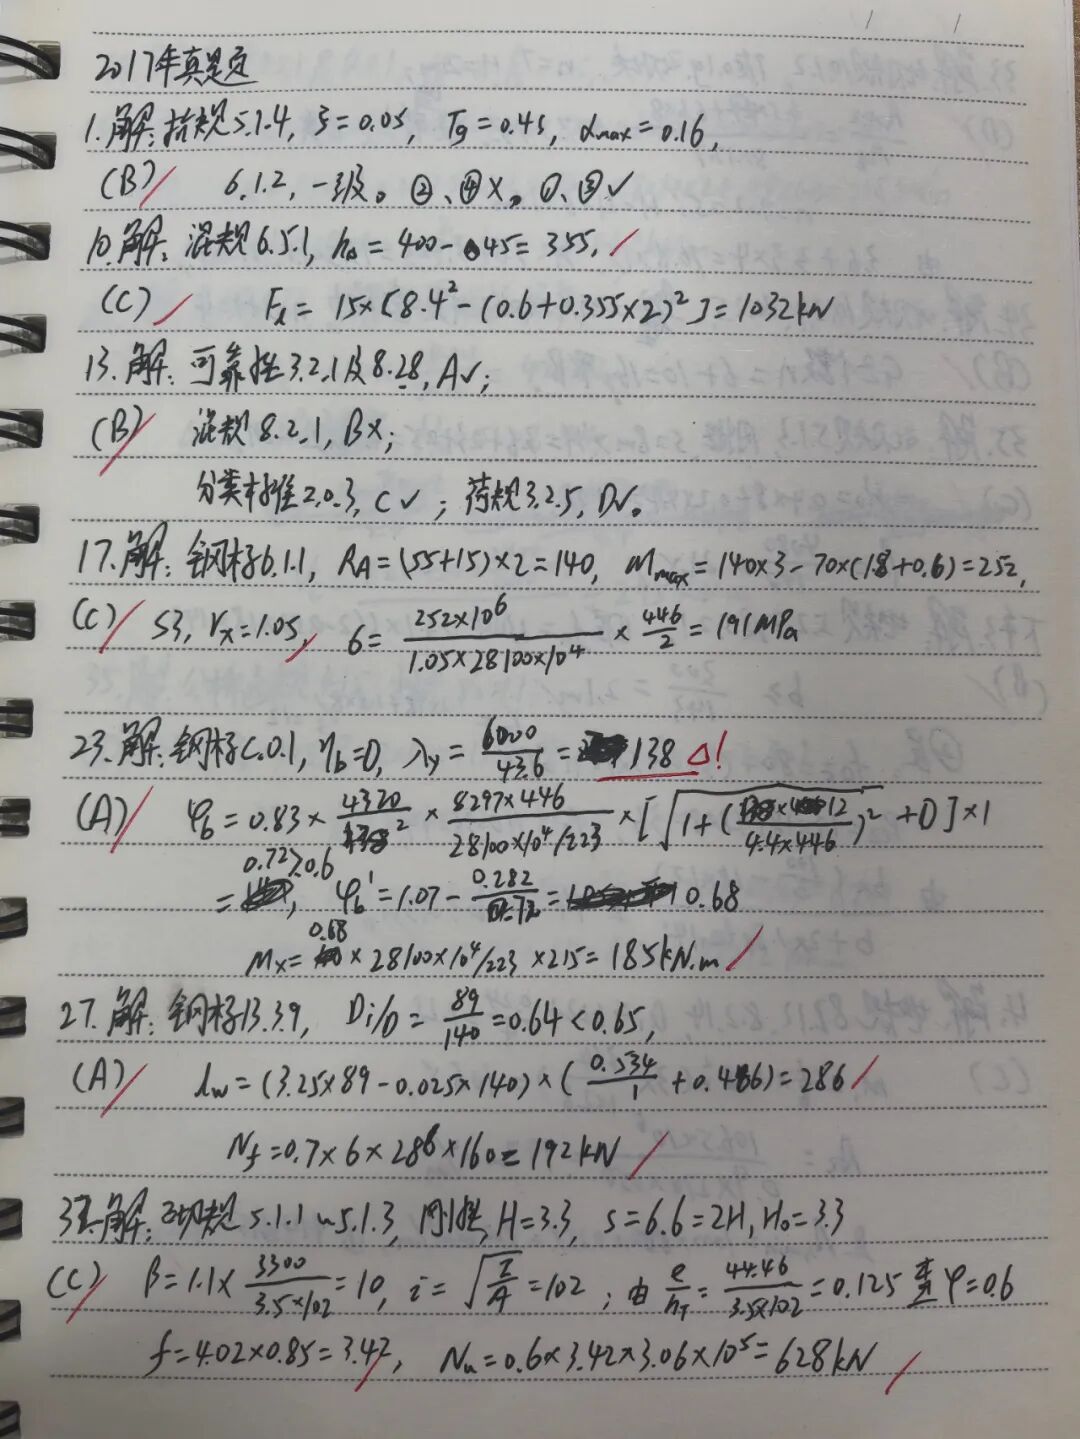 2017年真题
1.解:抗规5.1.4, ζ=0.05, Tg=0.45, αmax=0.16,
(B) 6.1.2, 一级。②、④×。①、③✓
10.解:混规6.5.1, h₀=400-45=355,
(C) Fl=15×[8.4²-(0.6+0.355×2)²]=1032kN
13.解:可靠性3.2.1及8.2.8, A✓;
(B) 混规8.2.1, B×;
分类标准2.0.3, C✓;荷规3.2.5, D✓。
17.解:钢标6.1.1, RA=(55+15)×2=140, Mmax=140×3-70×(1.8+0.6)=252,
(C) S3, γx=1.05, б=252×10⁶/1.05×28100×10⁴×446/2=191MPa
23.解:钢标C.0.1, ηb=0, λy=6000/43.6=138 △!
(A) φb=0.83×4320/138²×8297×446/28100×10⁴/223×[√1+(138×12/4.4×446)²+0]×1
=0.72>0.6, φb'=1.07-0.282/0.72=0.68
Mx=0.68×28100×10⁴/223×215=185kN.m
27.解:钢标13.3.9, Di/D=89/140=0.64<0.65,
(A) lw=(3.25×89-0.025×140)×(0.534/1+0.466)=286
Nf=0.7×6×286×160=192kN
32.解:砌规5.1.1~5.1.3, 刚性, H=3.3, s=6.6=2H, H₀=3.3
(C) β=1.1×3300/3.5×102=10, i=√I/A=102;由e/hT=44.46/3.5×102=0.125 查φ=0.6
f=4.02×0.85=3.42, Nu=0.6×3.42×3.06×10⁵=628kN